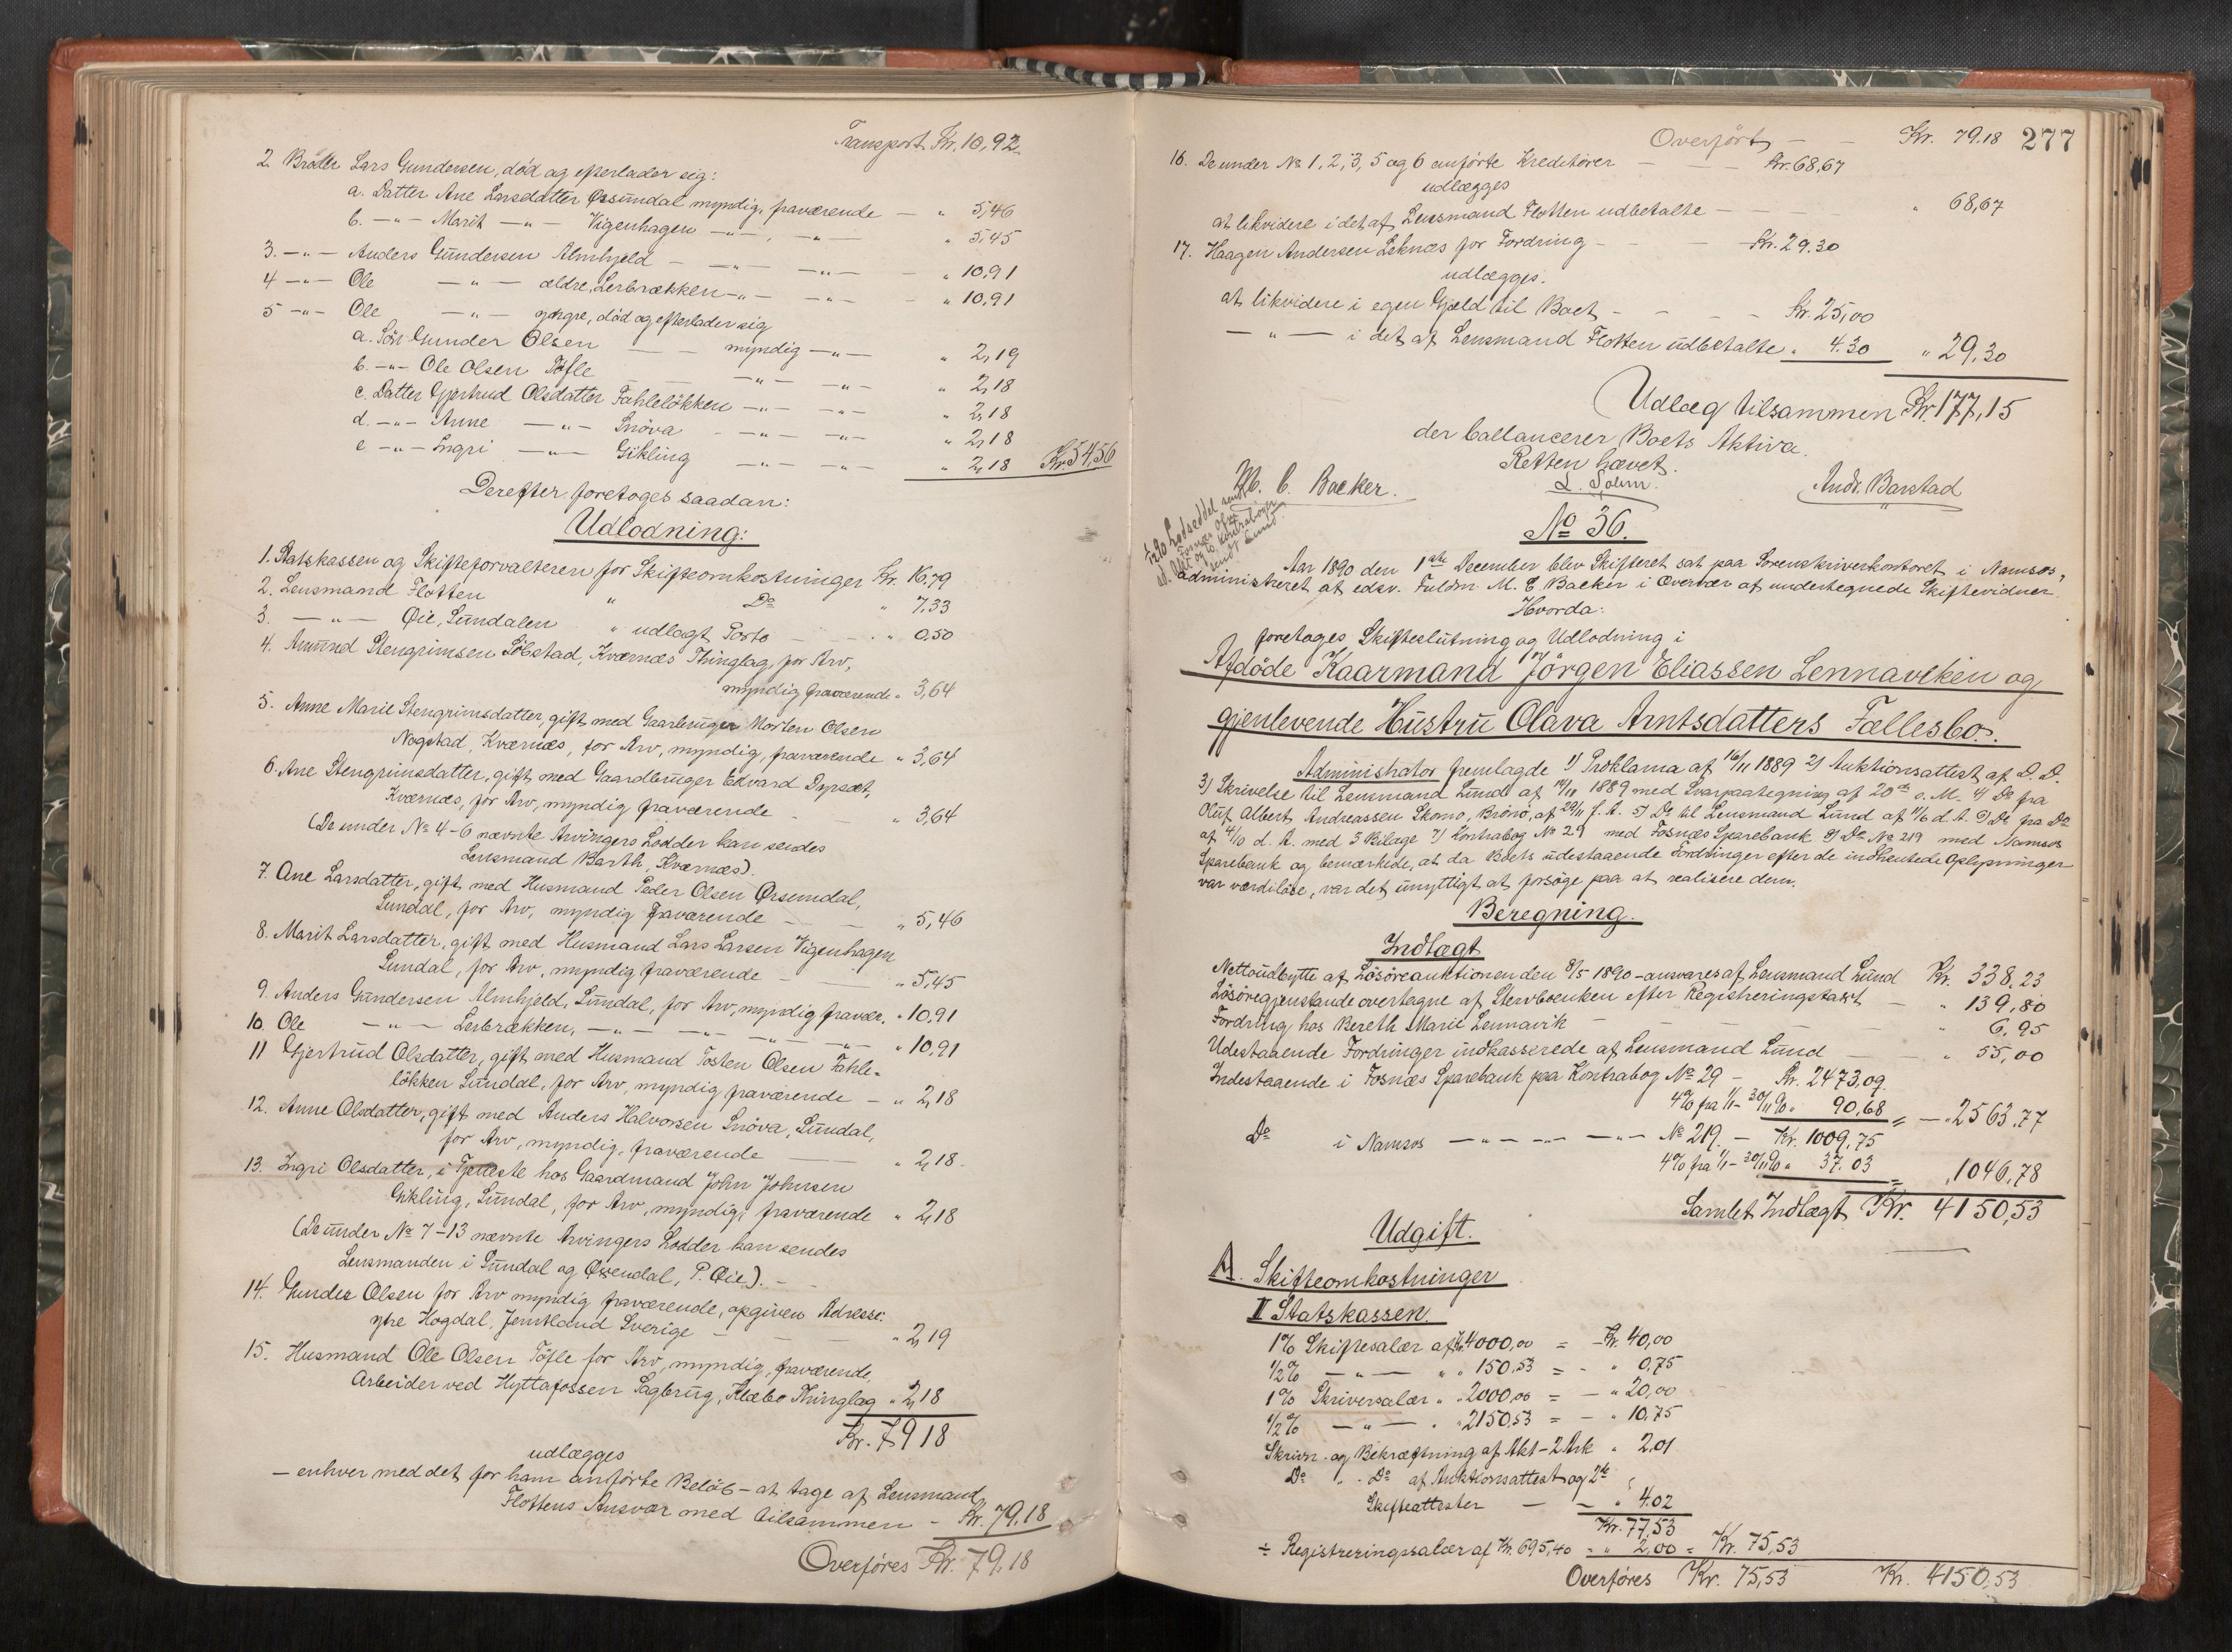 Transport Kr. 10,92
2. Broder Lars Gundersen, död og efterlader sig:
a. Datter Ane Larsdatter Øssundal myndig, fraværende — " 5,46
b. —"— Marit —"— Vigenhagen —"—, —"— " 5,45
3. —"— Anders Gundersen Almhjeld — —"— —"— — " 10,91
4 —"— Ole —"— ældre, Lerbrækken —"— —"— — " 10,91
5 —"— Ole —"— yngre, död og efterlader sig
a. Sön Gunder Olsen — — myndig —"— " 2,19
b. —"— Ole Olsen Töfle — — —"— —"— " 2,18
c. Datter Gjertrud Olsdatter Fahlelökken —"— —"— " 2,18
d. —"— Anne —"— Snöva — —"— —"— " 2,18
e —"— Ingri —"— Gikling —"— —"— " 2,18 Kr. 54,56
Derefter foretoges saadan:
Udlodning:
1. Statskassen og Skifteforvalteren for Skifteomkostninger Kr. 16,79
2. Lensmand Flotten " Do " 7,33
3. —"— Øie, Sundalen " udlagt Porto — — " 0,50
4. Amund Stengrimsen Löbstad, Kværnæs Thinglag, for Arv,
myndig fraværende " 3,64
5. Anne Marie Stengrimsdatter, gift med Gaarbruger Morten Olsen
Nogstad, Kværnæs, for Arv, myndig, fraværende " 3,64
6. Ane Stengrimsdatter, gift med Gaardbruger Edvard Dyrsæt,
Kværnæs, for Arv, myndig fraværende — " 3,64
(De under No 4-6 nævnte Arvingers Lodder kan sendes
Lensmand Barth, Kværnæs).
7. Ane Larsdatter, gift med Husmand Peder Olsen Ørsundal,
Sundal, for Arv, myndig fraværende — — " 5,46
8. Marit Larsdatter, gift med Husmand Lars Larsen Vigenhagen
Sundal, for Arv, myndig fraværende — " 5,45
9. Anders Gundersen Almhjeld, Sundal, for Arv, myndig fravær. " 10,91
10. Ole —"— Lerbrækken, —"— —"— —"— —"— " 10,91
11 Gjertrud Olsdatter, gift med Husmand Tosten Olsen Fahle-
lökken Sundal, for Arv, myndig, fraværende — " 2,18
12. Anne Olsdatter, gift med Anders Halvorsen Snöva, Sundal,
for Arv, myndig, fraværende — " 2,18
13. Ingri Olsdatter, i Tjeneste hos Gaardmand John Johnsen
Gikling, Sundal, for Arv, myndig, fraværende " 2,18
(De under No 7-13 nævnte Arvingers Lodder kan sendes
Lensmanden i Sundal og Øxendal, P. Øie). —
14. Gunder Olsen for Arv myndig fraværende, opgiven Adresse:
ytre Hogdal, Jemtland Sverige — — " 2,19
15. Husmand Ole Olsen Töfle for Arv, myndig, fraværende,
Arbeider ved Hyttafossen Sagbrug, Klæbo Thinglag " 2,18
Kr. 79 18
udlægges
— enhver med det for ham anförte Belöb — at tage af Lensmand
Flottens Ansvar med tilsammen — Kr. 79.18
Overföres Kr. 79,18
Overfört — — Kr. 79.18 277
16. De under No 1, 2, 3, 5 og 6 anförte Kreditorer — — Kr. 68,67
udlægges
at likvidere i det af Lensmand Flotten udbetalte — — — " 68,67
17. Haagen Andersen Leknæs for Fordring — — — Kr. 29.30
udlægges.
at likvidere i egen Gjæld til Boet — — — — Kr. 25,00
—"— i det af Lensmand Flotten udbetalte " 4.30 " 29,30
Udlæg tilsammen Kr 177,15
der ballancerer Boets Aktiva.
Retten hævet.
M. C. Backer. L. Solem. Andr. Barstad
No 36.
Aar 1890 den 1ste December blev Skifteret sat paa Sorenskriverkontoret i Namsos,
administreret af edsv. Fuldm. M. C. Backer i Overvær af undertegnede Skiftevidner.
Hvorda:
foretoges Skifteslutning og Udlodning i
Afdöde Kaarmand Jörgen Eliassen Lennaviken og
gjenlevende Hustru Olava Arntsdatters Fællesbo.
Administrator fremlagde 1) Proklama af 16/11 1889 2) Auktionsattest af D. D.
3) Skrivelse til Lensmand Lund af 14/11 1889 med Svarpaategning af 20de s. M. 4) Do fra
Oluf Albert Andreassen Skomo, Brönö, af 29/11 f. A. 5) Do til Lensmand Lund af 11/6 d. A. 6) Do fra Do
af 4/10 d. A. med 3 Bilage 7) Kontrabog No 29 med Fosnæs Sparebank 8) Do No 219 med Namsos
Sparebank og bemærkede, at da Boets udestaaende Fordringer efter de indhentede Oplysninger
var værdilöse, var det unyttigt at forsöge paa at realisere dem.
Beregning.
Indtægt
Nettoudbytte af Lösöreauktionen den 8/5 1890 — ansvares af Lensmand Lund Kr. 338.23
Lösöregjenstande overtagne af Stervboenken efter Registreringstaxt — " 139,80
Fordring hos Bereth Marie Lennavik — — — — " 6,95
Udestaaende Fordringer indkasserede af Lensmand Lund — — " 55,00
Indestaaende i Fosnæs Sparebank paa Kontrabog No 29 — Kr. 2473,09
4% fra 1/1 - 30/11 90 " 90,68 = — " 2563,77
Do i Namsos —"— —"— —"— No 219. — Kr. 1009,75
4% fra 1/1 - 30/11 90 " 37.03 = " 1046,78
Samlet Indtægt Kr. 4150,53
Udgift.
A. Skifteomkostninger
I Statskassen.
1% Skiftesalær af Kr. 4000,00 = — Kr. 40,00
1/2% —"— " " 150,53 = — " 0,75
1% Skriversalær " " 2000,00 = — " 20,00
1/2% —"— " " 2150,53 = — " 10,75
Skrivn. og Bekræftning af Akt — 2 Ark " 2,01
Do " Do af Auktionsattest og 2de
Skifteattester — — " 4.02
Kr. 77,53
÷ Registreringssalær af Kr. 695,40 = " 2,00 = Kr. 75,53
Overföres Kr. 75,53 Kr. 4150,53